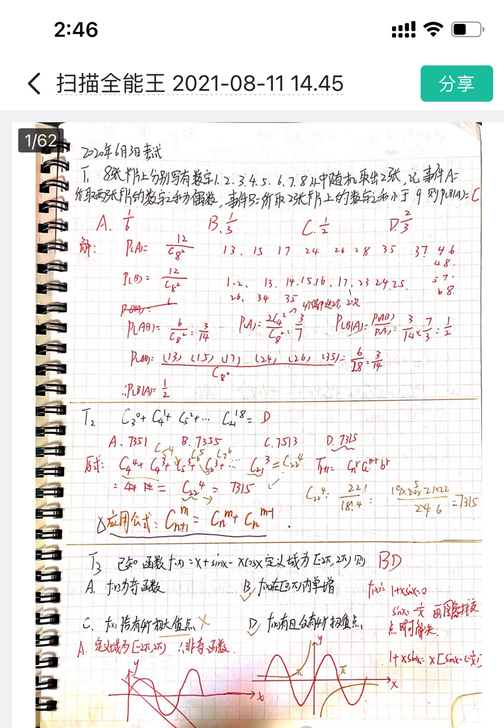 2:46
扫描全能王 2021-08-11 14.45
分享
1/62
2020年6月3日考试
T1 8张卡片上分别写有数字1.2.3.4.5.6.7.8,从中随机取出2张,记事件A=
所取两张卡片的数字之和为偶数,事件B=所取2张卡片上的数字之和小于9 则P(B|A)= C
A. 1/6 B. 1/3 C. 1/2 D. 2/3
解: P(A)= 12/C8² 13. 15 17 24 26 28 35 37 46
48.
P(B)= 12/C8² 1.2. 13. 14.15.16. 17. 23 24.25.
57.
26. 34 35
68.
P(AB)= 6/C8² = 3/14 P(A)= 2C4²/C8² = 3/7 P(B|A)= P(AB)/P(A) = 3/14 × 7/3 = 1/2
P(AB)= (13) (15) (17) (24) (26) (35)/C8² = 6/28 = 3/14
∴P(B|A)= 1/2
T2 C3⁰+C4¹+C5²+… C21¹⁸= D
A. 7351 B. 7355 C. 7513 D. 7315
原式: C4⁴+C4³+C5³+C6³+… C21³ = C22⁴
= C22⁴ = 7315
△应用公式: Cn+1^m = Cn^m + Cn^m-1.
T3 已知函数f(x)=x+sinx-xcosx定义域为[-2π,2π)则 BD
A. f(x)为奇函数 B. f(x)在[0,π)内单增
f(x)'= 1+xsinx-0
C. f(x)恰有4个极大值点 × D. f(x)有且仅有4个极值点
A. 定义域为[-2π,2π) ∴非奇函数